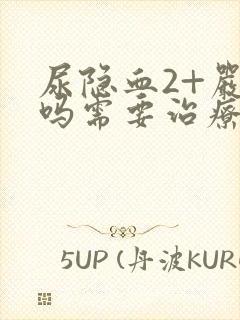 尿隐血2+嚴
吗需要治療
5UP (丹波KUR